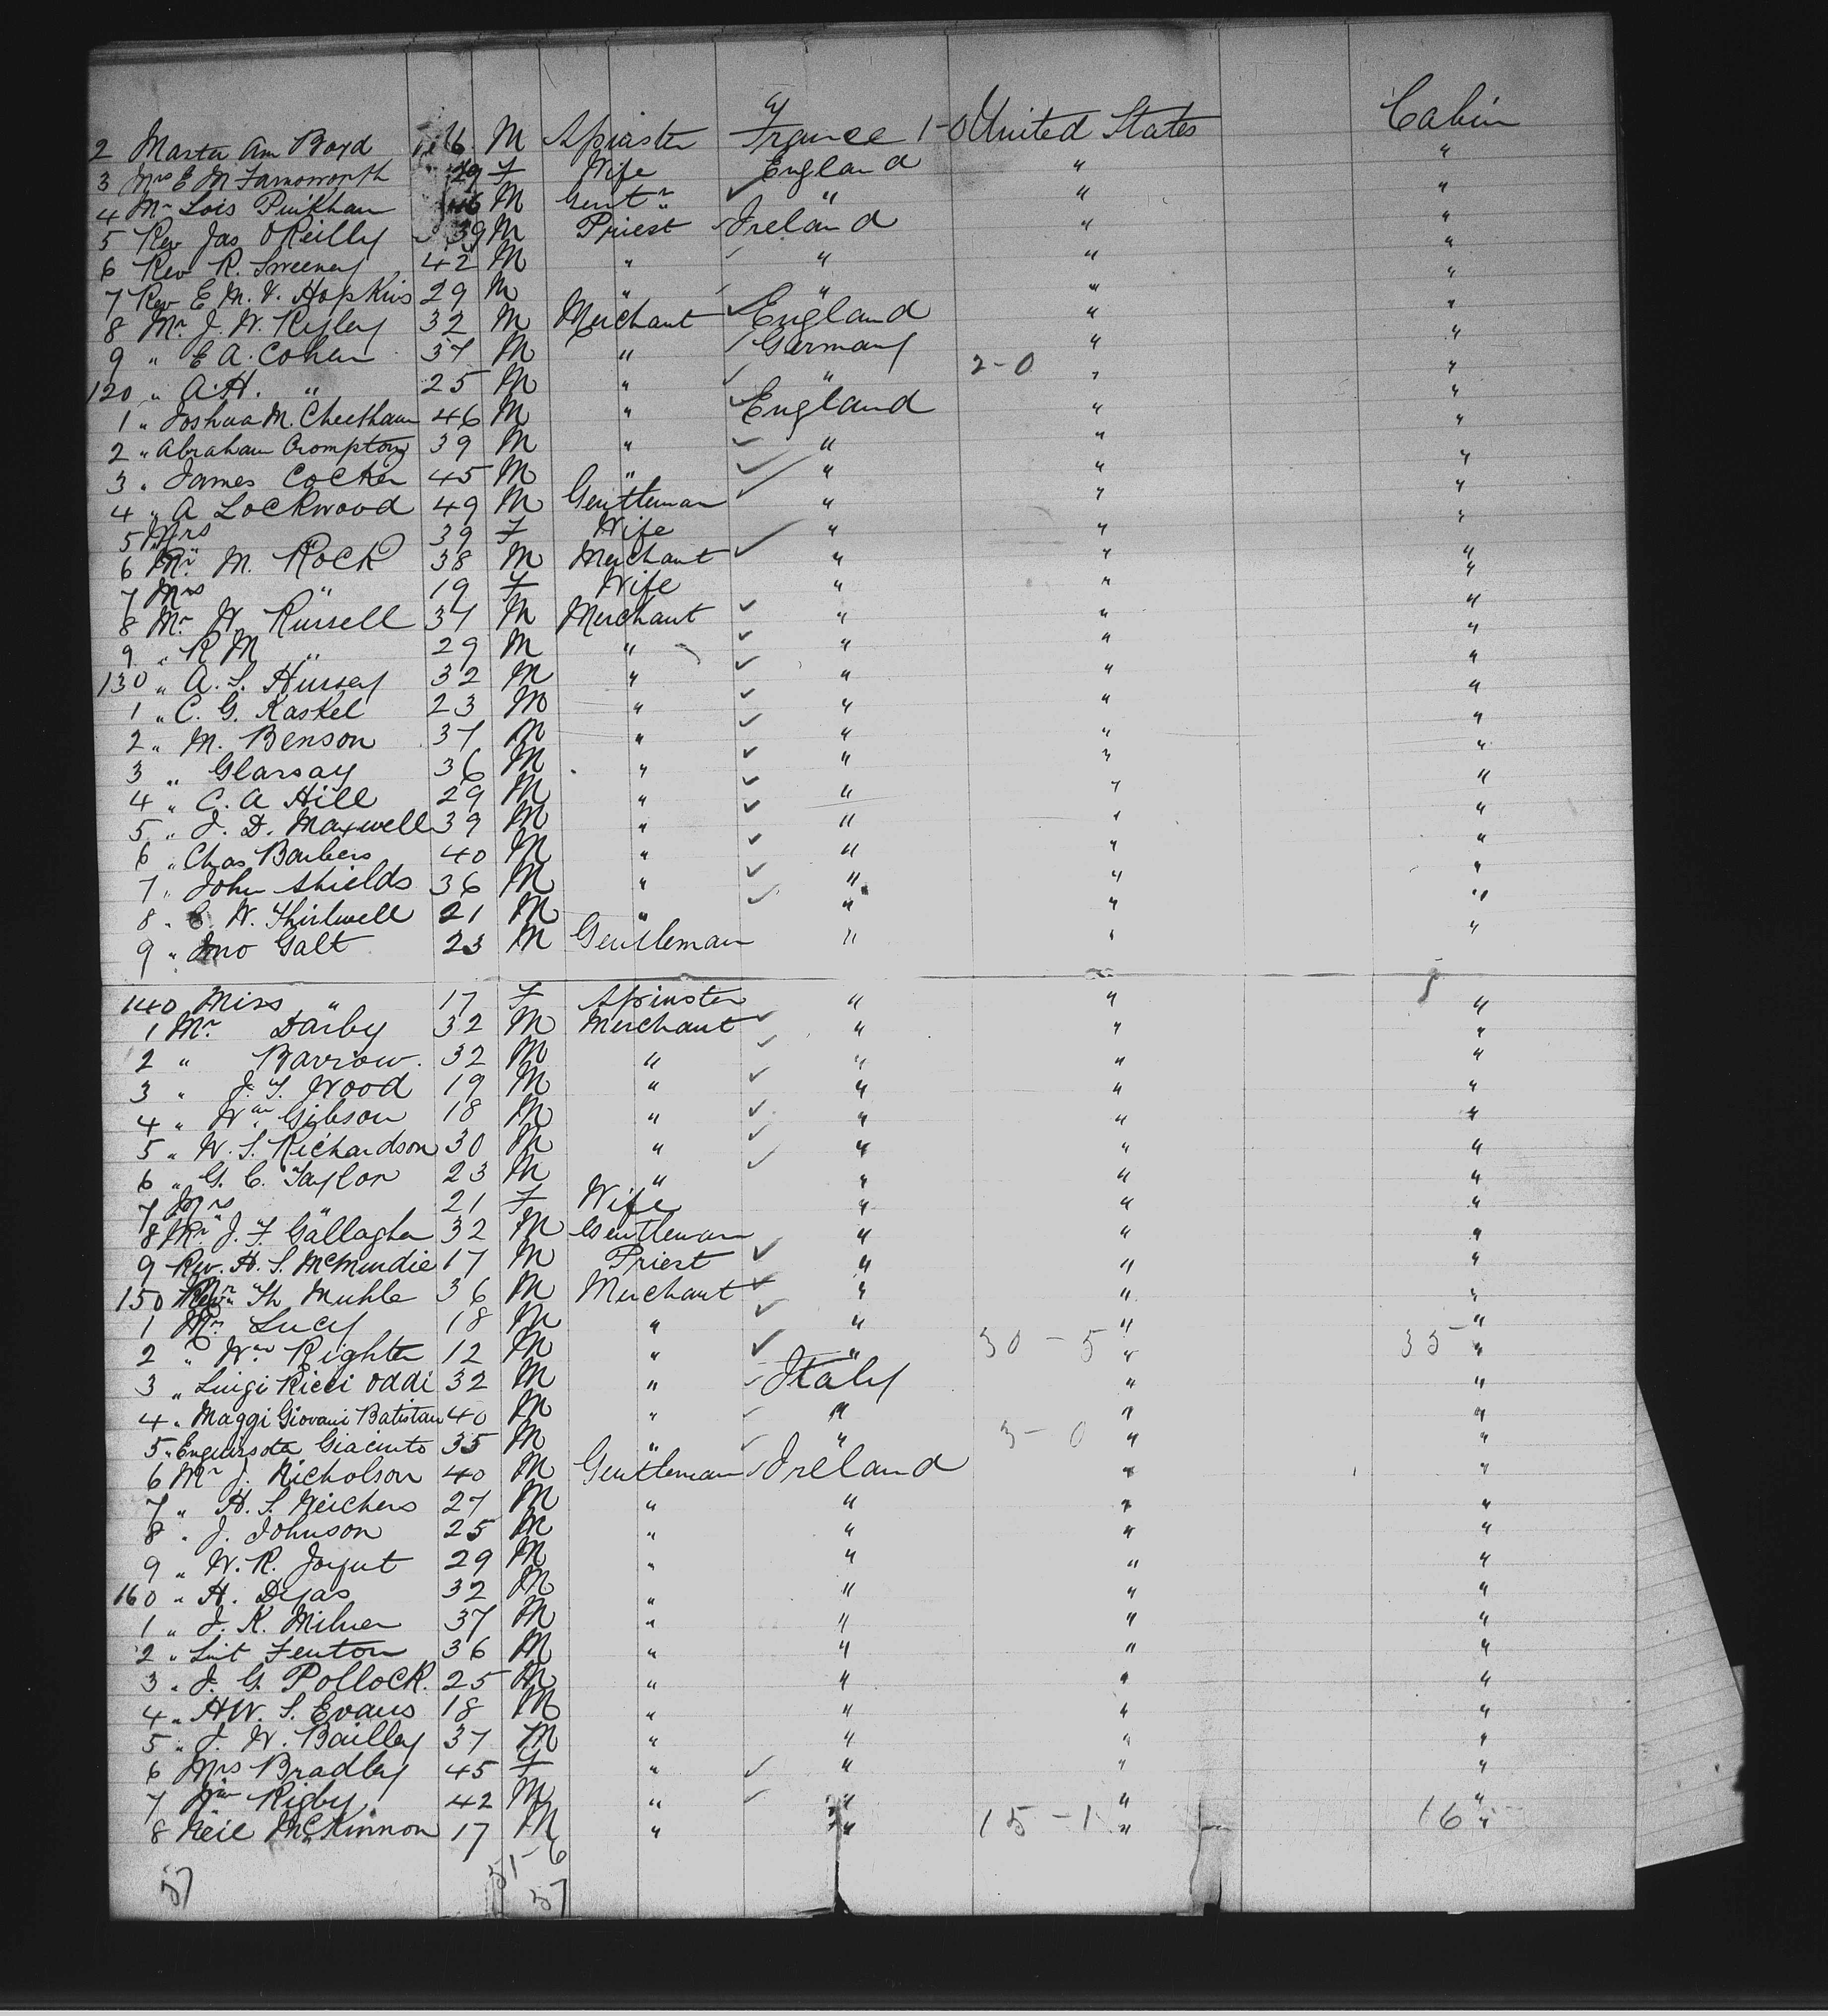 Cabin
2 Master Am Boyd 6 M Spinster France 1-0 United States
3 Mrs E M Farnsworth 29 F Wife England " "
4 Mr Lois Pinkham 46 M Gentn " " "
5 Rev Jas OReilly 39 M Priest Ireland " "
6 Rev R. Sweeney 42 M " " " "
7 Rev E. M. V. Hopkins 29 M " " " "
8 Mr J. W. Rigley 32 M Merchant England " "
9 " E A. Cohen 37 M " Germany " "
120 " A. H. " 25 M " " 2-0 " "
1 " Joshua M. Cheetham 46 M " England " "
2 " Abraham Crompton 39 M " " " "
3 " James Cocker 45 M " " " "
4 " A Lockwood 49 M Gentleman " " "
5 Mrs " 39 F Wife " " "
6 Mr. M. Rock 38 M Merchant " " "
7 Mrs " 19 F Wife " " "
8 Mr. W. Russell 37 M Merchant " " "
9 " R M " 29 M " " " "
130 " A. S. Hursey 32 M " " " "
1 " C. G. Kaskel 23 M " " " "
2 " M. Benson 37 M " " " "
3 " Glarsay 36 M " " " "
4 " C. A Hill 29 M " " " "
5 " J. D. Maxwell 39 M " " " "
6 " Chas Barbers 40 M " " " "
7 " John Shields 36 M " " " "
8 " W. Thirlwell 21 M " " " "
9 " Jno Galt 23 M Gentleman " " "
140 Miss " 17 F Spinster " " "
1 Mr. Darby 32 M Merchant " " "
2 " Barrow. 32 M " " " "
3 " J. T. Wood 19 M " " " "
4 " Wm Gibson 18 M " " " "
5 " W. S. Richardson 30 M " " " "
6 " G. C. Taylor 23 M " " " "
7 Mrs " 21 F Wife " " "
8 Mr. J. F. Gallagher 32 M Gentleman " " "
9 Rev. H. S. McMurdie 17 M Priest " " "
150 Th Muhle 36 M Merchant " " "
1 Mr. Lucy 18 M " " " "
2 " Wm Righter 12 M " " 30-5 " 35 "
3 " Luigi Ricci Oddi 32 M " Italy " "
4 " Maggi Giovani Batistan 40 M " " " "
5 " Giacinto 35 M " " 3-0 " "
6 Mr J. Nicholson 40 M Gentleman Ireland " "
7 " H. S. Weichers 27 M " " " "
8 " J. Johnson 25 M " " " "
9 " W. R. 29 M " " " "
160 " H. Dyas 32 M " " " "
1 " J. K. Milner 37 M " " " "
2 " Lint Fenton 36 M " " " "
3 " J. G. Pollock. 25 M " " " "
4 " HW. S. Evans 18 M " " " "
5 " J. W. Bailley 37 M " " " "
6 Mrs Bradley 45 F " " " "
7 Wm Rigby 42 M " " " "
8 Neil McKinnon 17 M " " 15-1 " 16 "
57 51-6
57